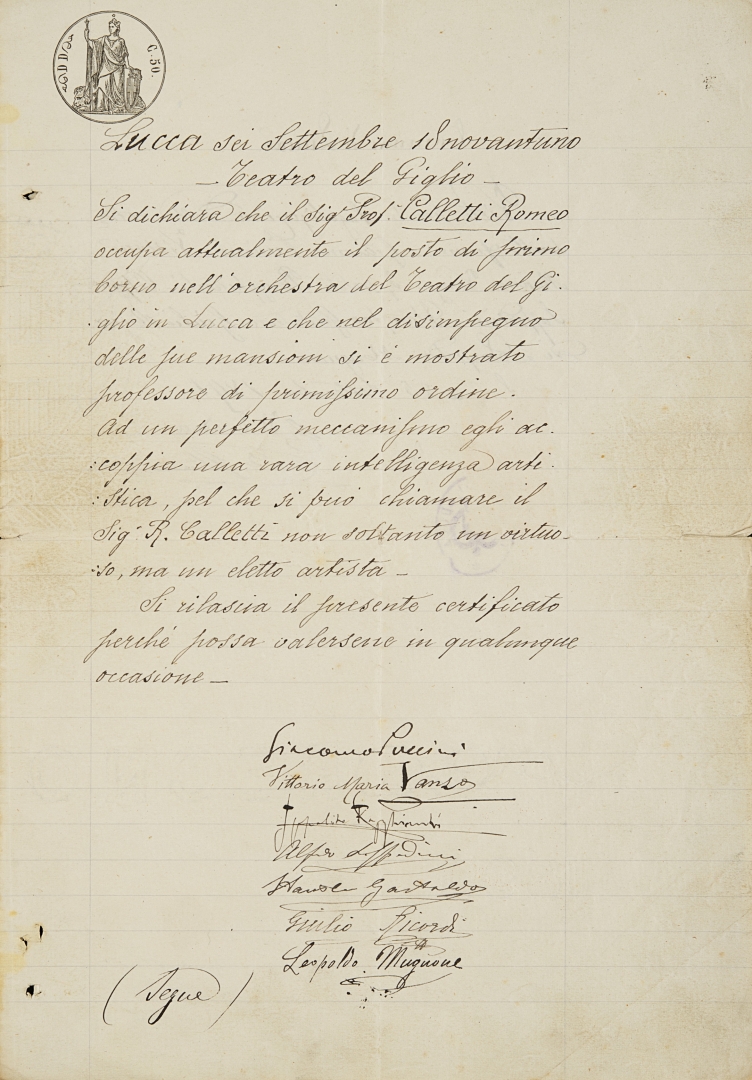 C. 50.
Lucca sei Settembre 18novantuno
— Teatro del Giglio —
Si dichiara che il Sigr Prof. Calletti Romeo
occupa attualmente il posto di primo
Corno nell'orchestra del Teatro del Gi-
-glio in Lucca e che nel disimpegno
delle sue mansioni si è mostrato
professore di primissimo ordine.
Ad un perfetto meccanismo egli ac:
:coppia una rara intelligenza arti:
:stica, pel che si può chiamare il
Sigr R. Calletti non soltanto un virtuo-
:so, ma un eletto artista —
Si rilascia il presente certificato
perché possa valersene in qualunque
occasione —
Giacomo Puccini
Vittorio Maria Vanzo
Ippolito
Alfredo
Gastaldo
Giulio Ricordi
Leopoldo Mugnone
(Segue)